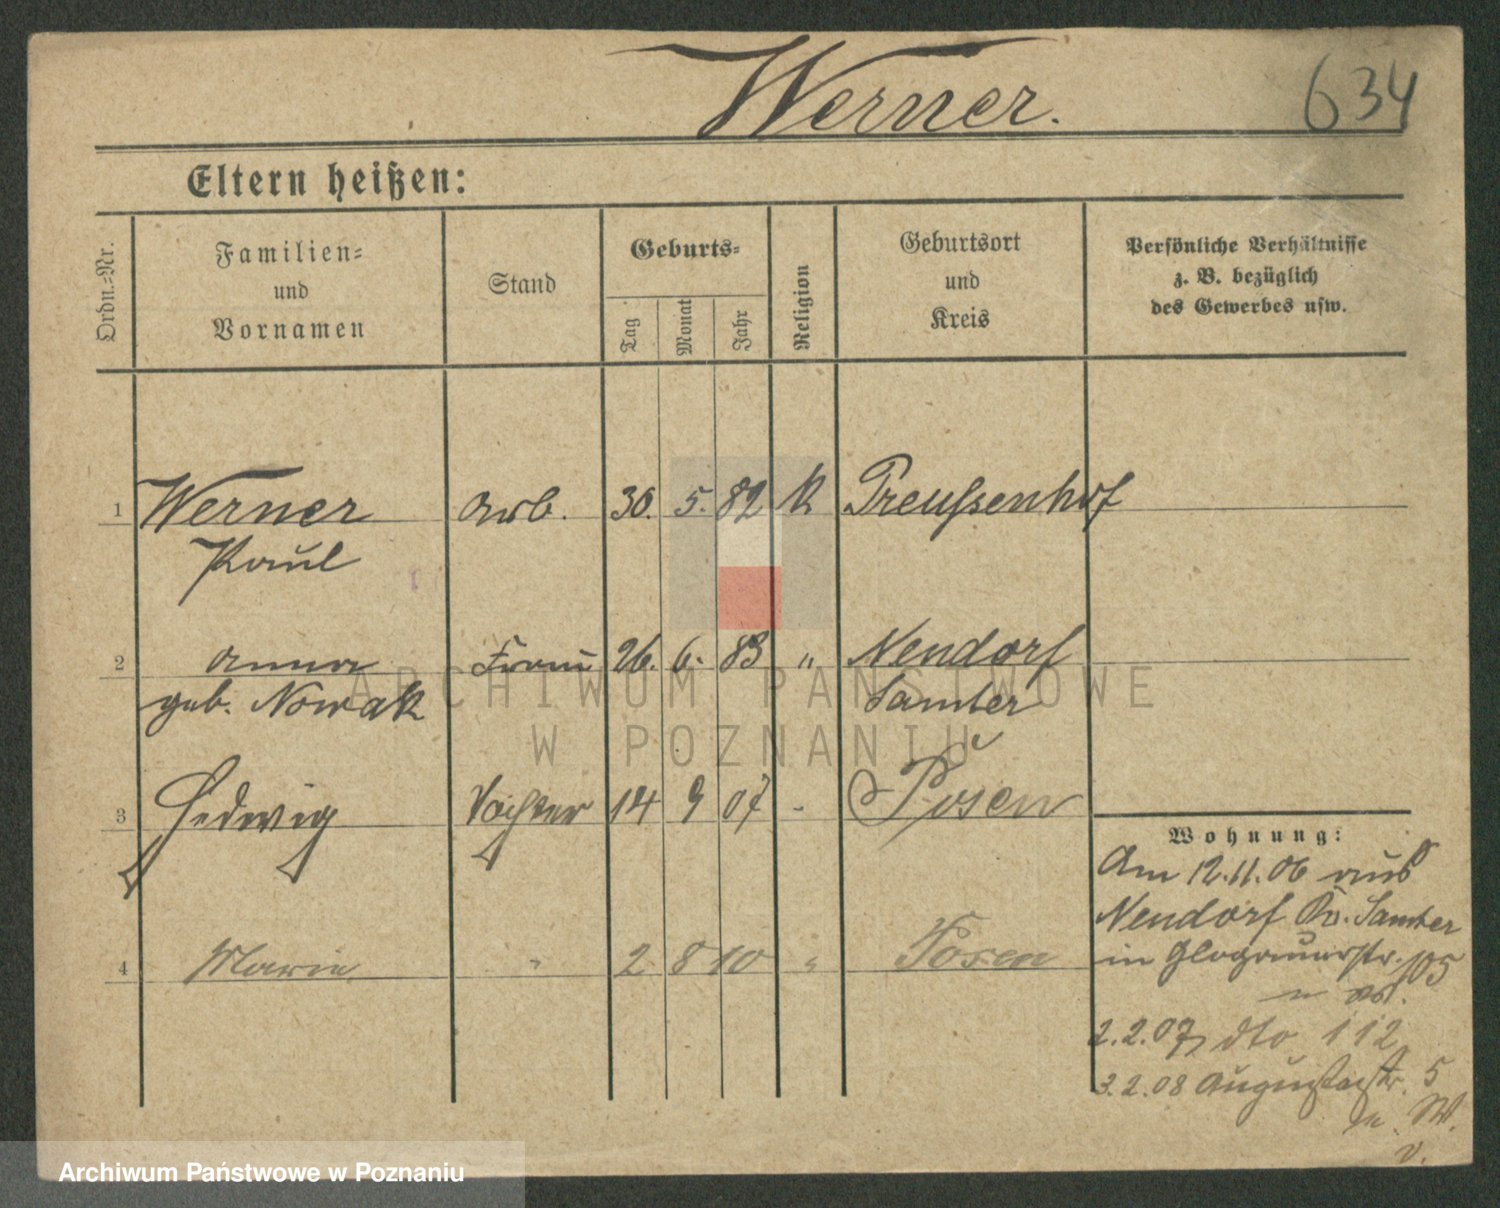 Werner.
634
Eltern heißen:
Ordn.-Nr.
Familien-
und
Vornamen
Stand
Geburts-
Tag
Monat
Jahr
Religion
Geburtsort
und
Kreis
Persönliche Verhältnisse
z. B. bezüglich
des Gewerbes usw.
1 Werner Arb. 30. 5. 82 K Preußenhof
Paul
2 Anna Frau 26. 6. 83 " Neudorf
geb. Nowak Samter
3 Hedwig Tochter 14 9 07 - Posen
4 Marie " 2 8 10 " Posen
Wohnung:
Am 12.11.06 aus
Neudorf Kr. Samter
in Glogauerstr. 105
2.2.07 dto 112
3.2.08 Augustastr. 5
ARCHIWUM PAŃSTWOWE
W POZNANIU
Archiwum Państwowe w Poznaniu